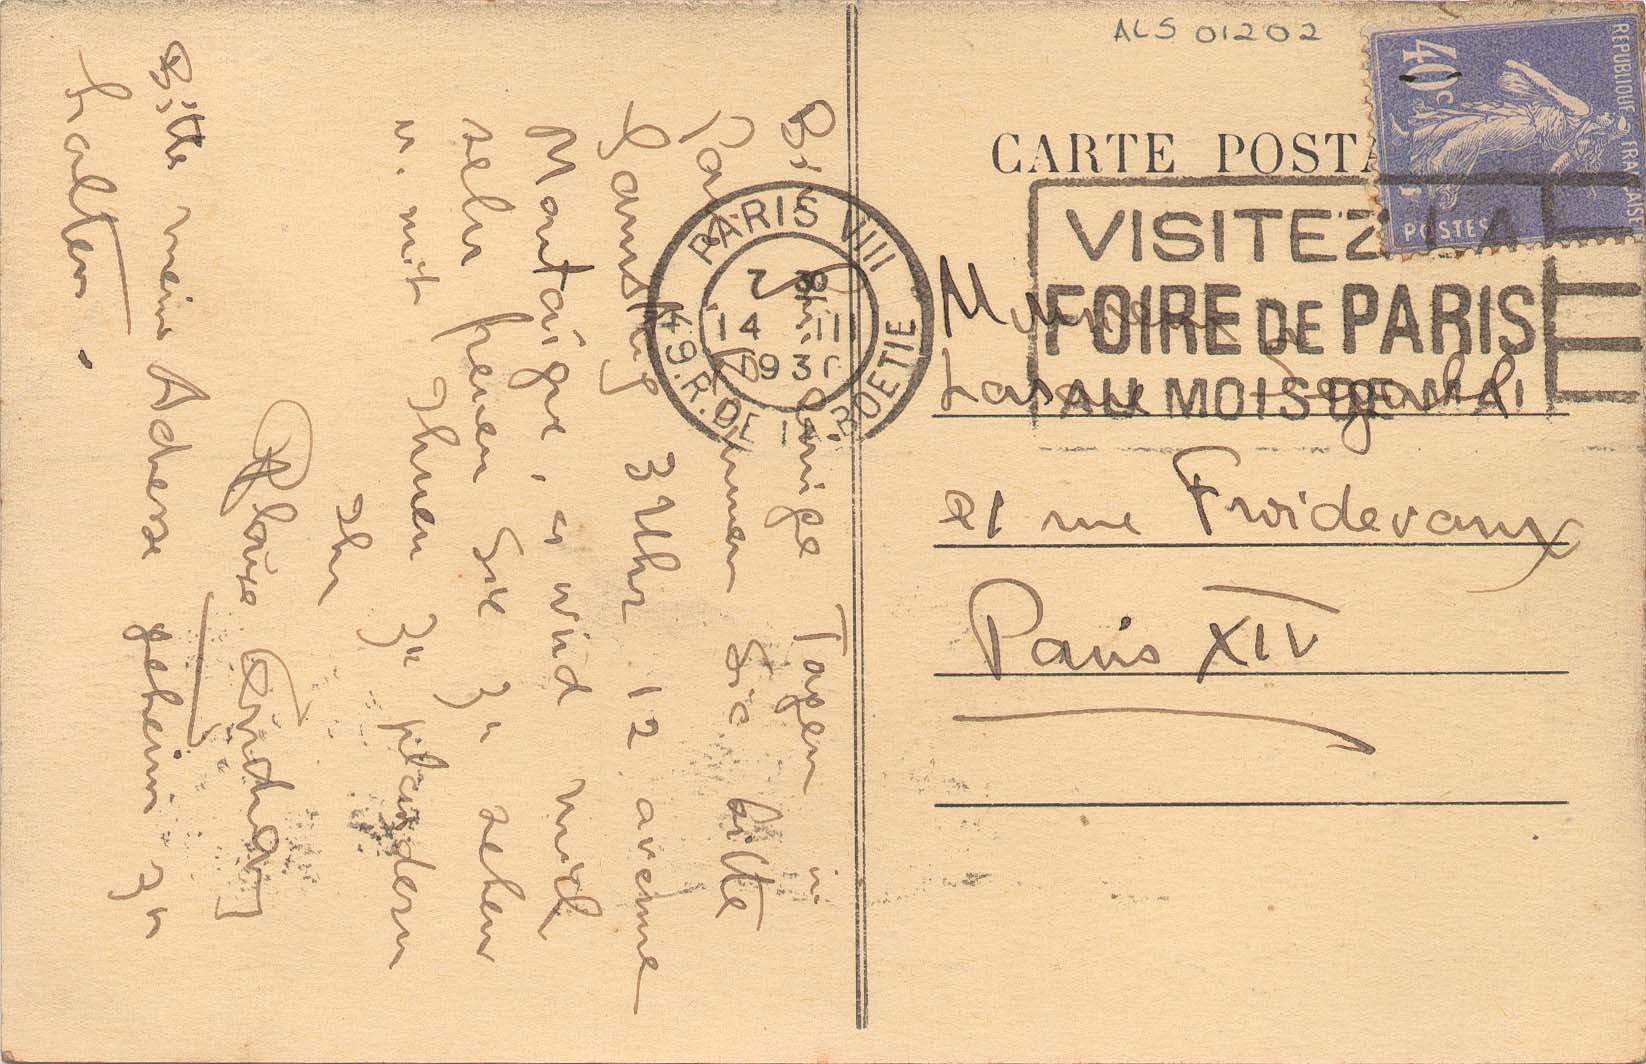 Bin einige Tagen in
Paris kommen Sie bitte
Samstag 3 Uhr 12 avenue
Montaigne, es wird mich
sehr freuen Sie zu sehen
u. mit Ihnen zu plaudern
Ihr
Bitte meine Adresse geheim zu
halten.
ALS 01202
CARTE POSTA
REPUBLIQUE FRANÇAISE
40c
POSTES
PARIS VIII
7 30
14 II
1931
49. R. DE LA BOETIE
VISITEZ LA
FOIRE DE PARIS
AU MOIS DE MAI
Monsieur
Lasare Segall
21 rue Froidevaux
Paris XIV